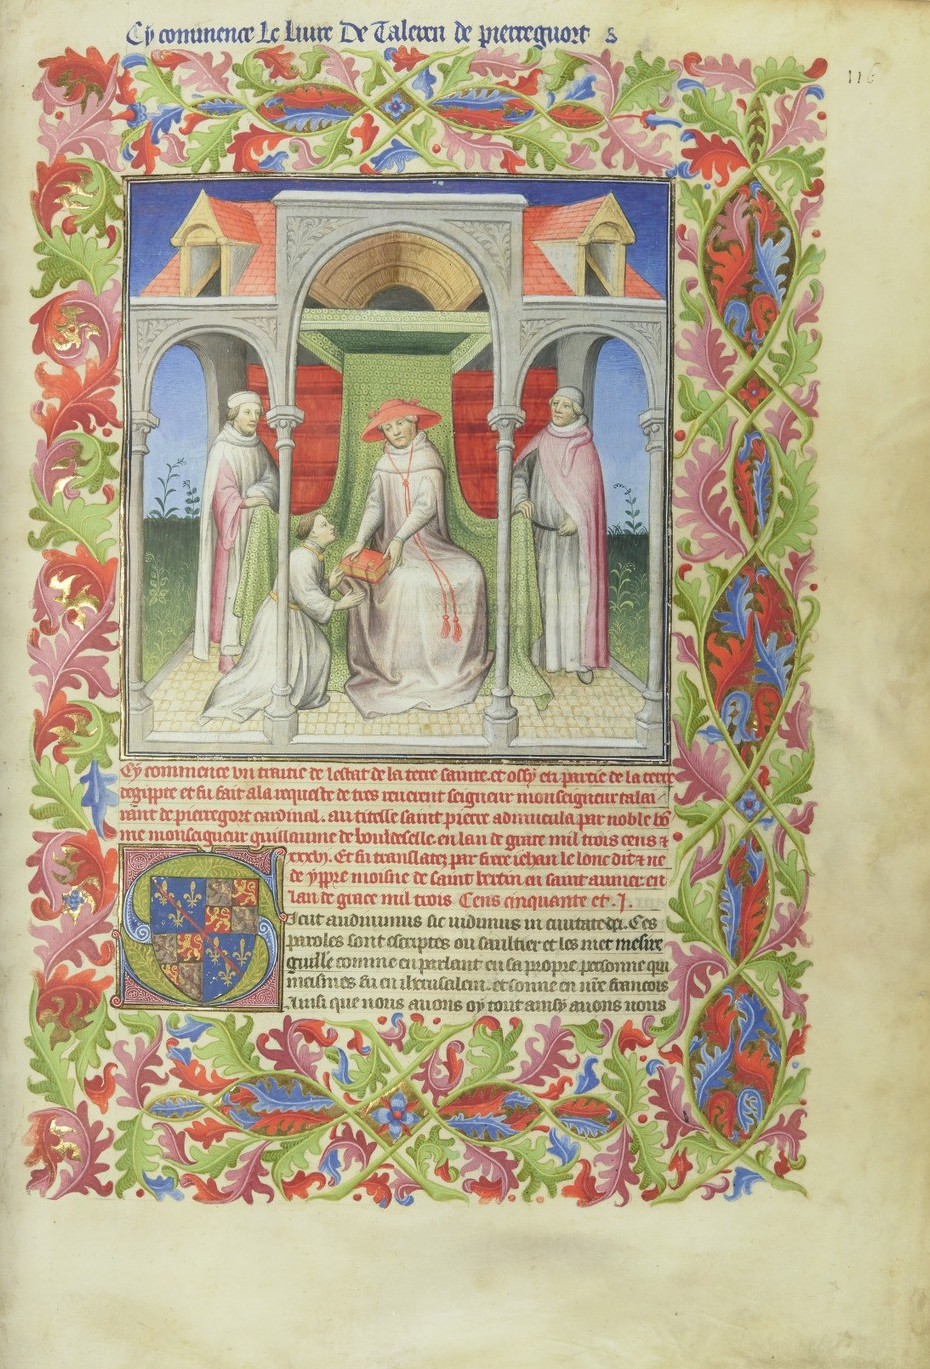 Cy commence Le liure De Taleren de pierreguort
116
Cy commence vn traitie de lestat de la terre sainte. et ossy en partie de la terre
degippte et fu fait a la requeste de tres reuerent seigneur monseigneur talai
rant de pierregort cardinal. au titlle saint pierre aduincula par noble hō
me monseigneur guillaume de bouldeselle. en lan de grace mil trois cens ⁊
xxxvj. Et fu translatez par frere iehan le lonc dit ⁊ ne
de yppre moisne de saint bertin en saint aumer. en
lan de grace mil trois Cens cinquante et .j.
Sicut audiuimus sic uidimus in ciuitate dei. Ces
paroles sont escriptes ou saultier et les met mesire
guille comme en parlant en sa propre personne qui
meismes fu en iherusalem. et sonne en nr̄e francois
Ainsi que nous auons oy tout ainsy auons nous